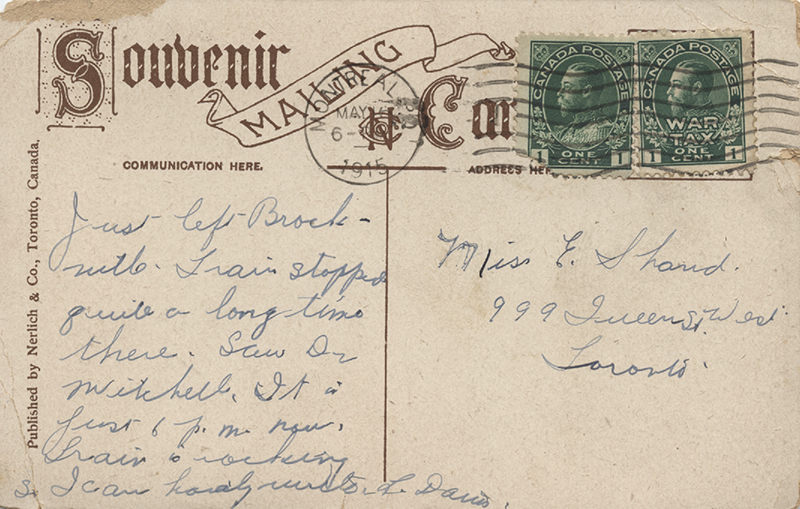 Souvenir
MAILING
Car
COMMUNICATION HERE.
ADDRESS HER
Published by Nerlich & Co., Toronto, Canada.
MONTREAL
MAY
6-
1915
CANADA POSTAGE
1 ONE CENT 1
CANADA POSTAGE
WAR
TAX
1 ONE CENT 1
Just left Brock-
ville. Train stopped
quite a long time
there. Saw Dr
Mitchell. It is
just 6 p.m. now.
Train is rocking
so I can hardly write. L. Davis.
Miss E. Shand.
999 Queen St. West
Toronto.